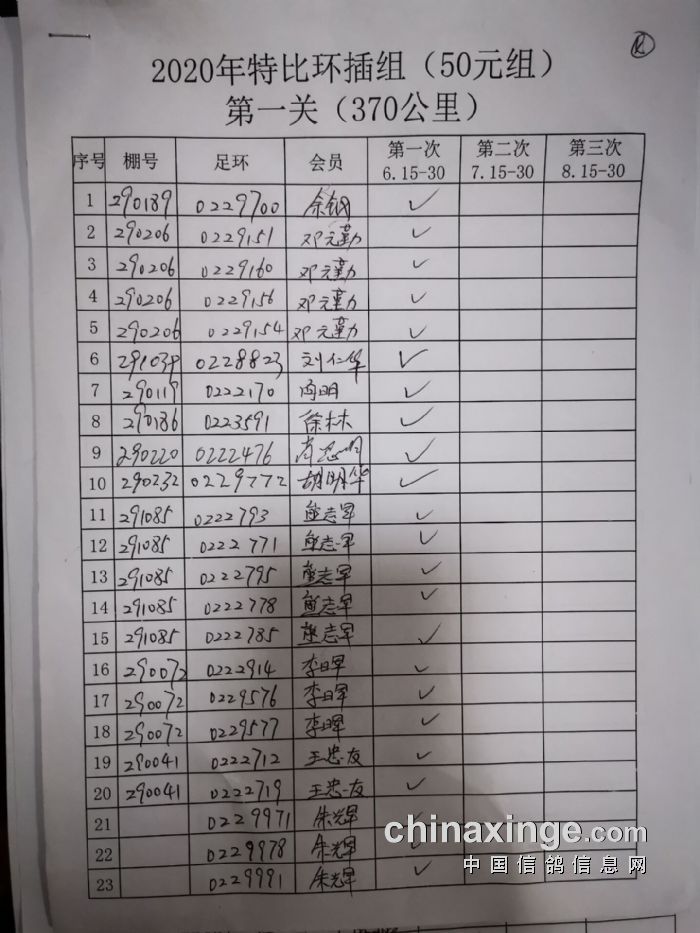 ②
2020年特比环插组（50元组）
第一关（370公里）
序号 棚号 足环 会员 第一次 6.15-30 第二次 7.15-30 第三次 8.15-30
1 290189 0229700 余钢 ✓
2 290206 0229151 邓元勤 ✓
3 290206 0229160 邓元勤 ✓
4 290206 0229156 邓元勤 ✓
5 290206 0229154 邓元勤 ✓
6 291039 0228823 刘仁华 ✓
7 290119 0222170 陶明 ✓
8 290186 0223591 徐林 ✓
9 290220 0222476 ✓
10 290232 0229772 胡明华 ✓
11 291085 0222793 熊志军 ✓
12 291085 0222771 熊志军 ✓
13 291085 0222795 熊志军 ✓
14 291085 0222778 熊志军 ✓
15 291085 0222785 熊志军 ✓
16 290072 0222914 李晖 ✓
17 290072 0229576 李晖 ✓
18 290072 0229577 李晖 ✓
19 290041 0222712 王忠友 ✓
20 290041 0222719 王忠友 ✓
21 0229971 朱光军 ✓
22 0229978 朱光军 ✓
23 0229991 朱光军 ✓
chinaxinge.com
中国信鸽信息网